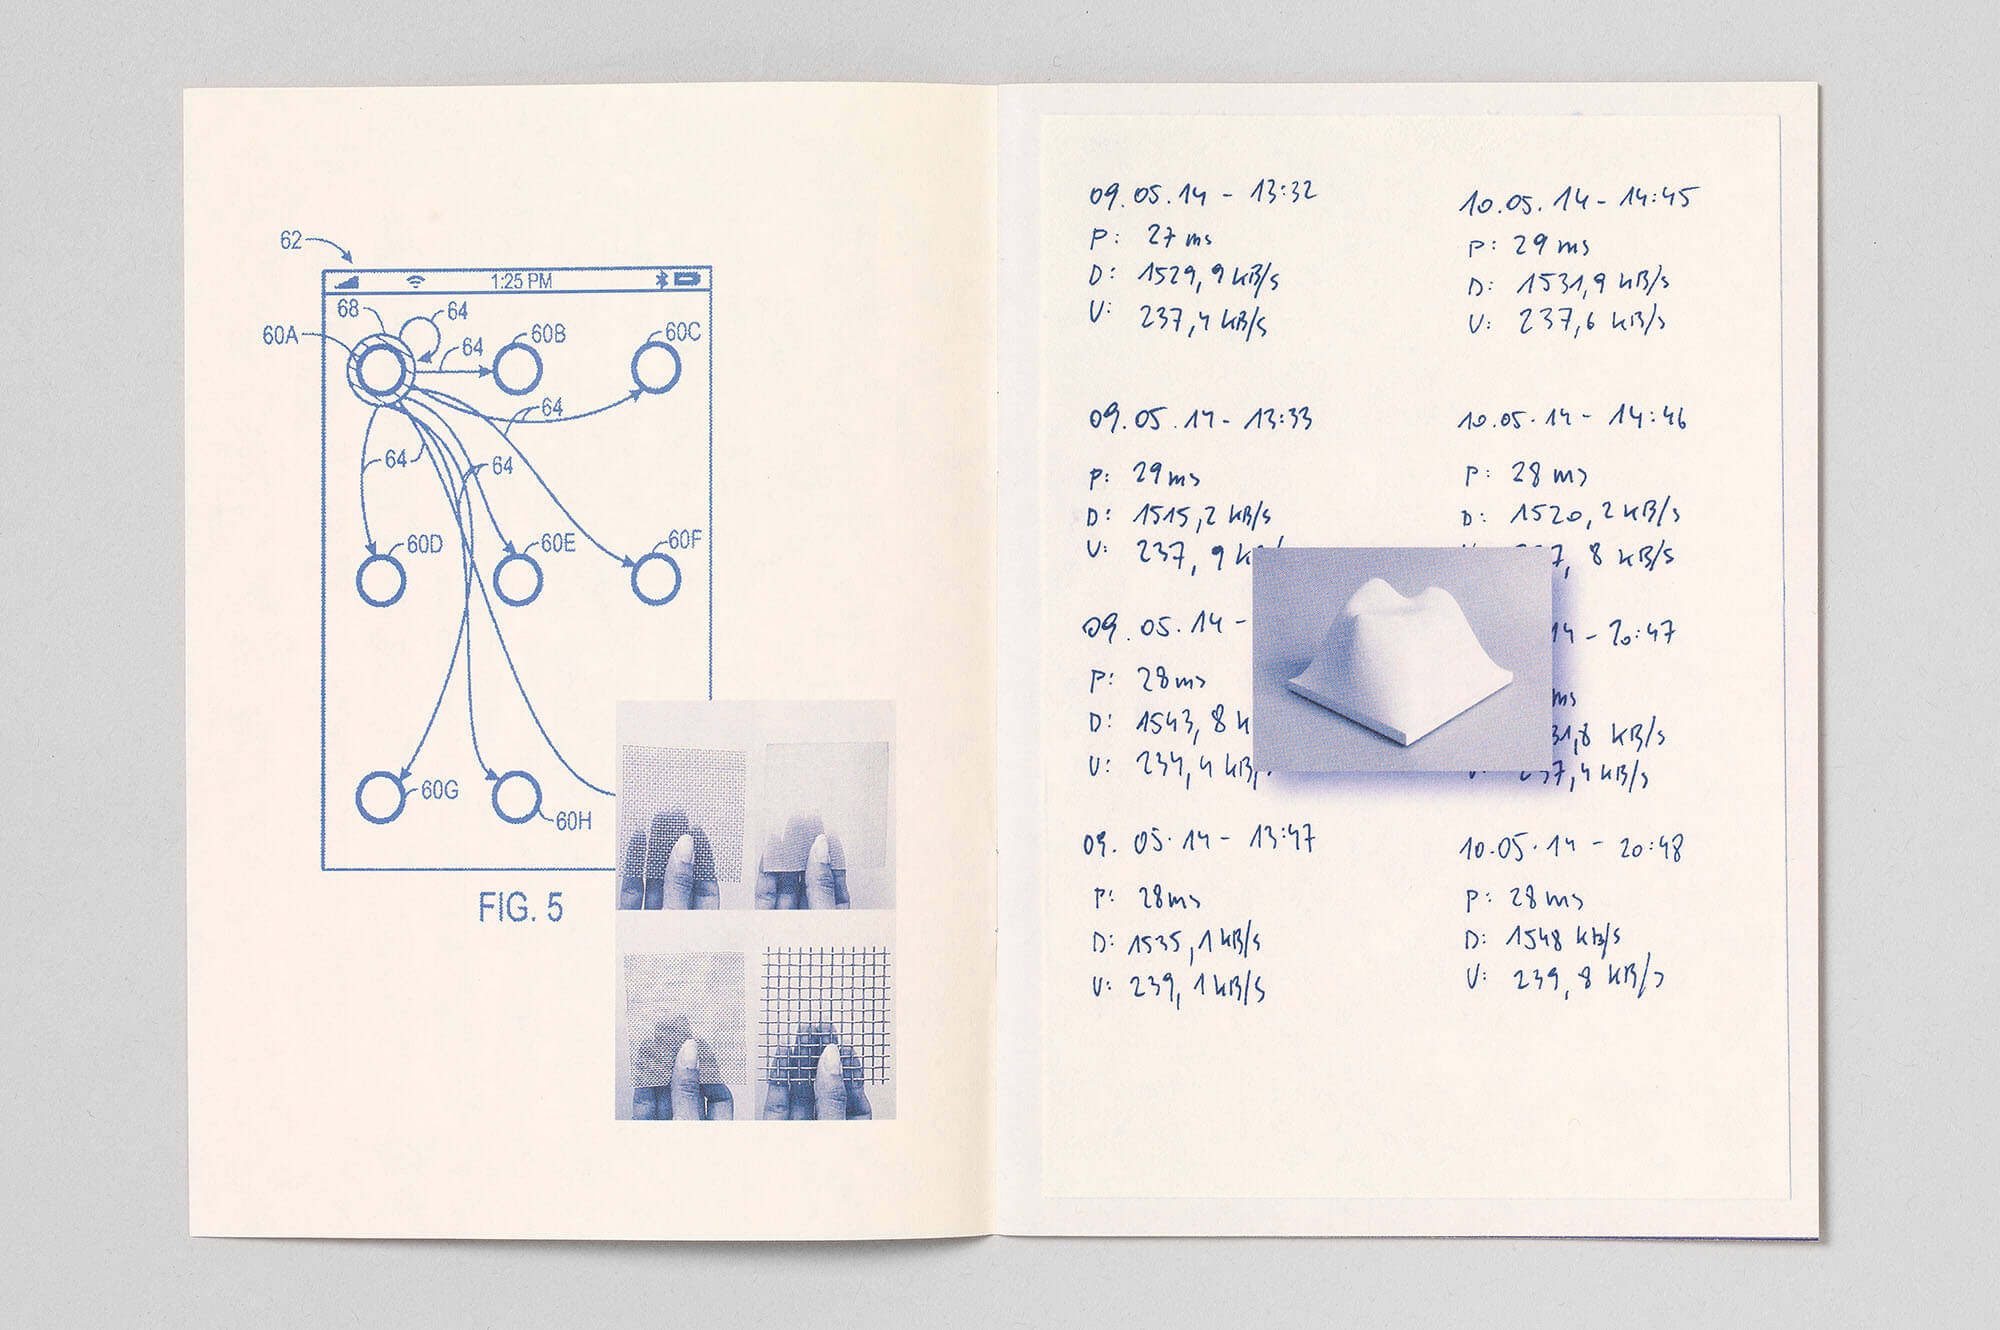 62
1:25 PM
68
64
60A
64
60B
60C
64
64
64
60D
60E
60F
60G
60H
FIG. 5
09.05.14 - 13:32
P: 27 ms
D: 1529,9 KB/s
U: 237,4 KB/s
09.05.14 - 13:33
P: 29 ms
D: 1515,2 KB/s
U: 237,9 K
09.05.14 -
P: 28 ms
D: 1543,8 K
U: 234,4 KB/
09.05.14 - 13:47
P: 28 ms
D: 1535,1 KB/s
U: 239,1 KB/s
10.05.14 - 14:45
P: 29 ms
D: 1531,9 KB/s
U: 237,6 KB/s
10.05.14 - 14:46
P: 28 ms
D: 1520,2 KB/s
7,8 KB/s
14 - 20:47
ms
31,8 KB/s
237,4 KB/s
10.05.14 - 20:48
P: 28 ms
D: 1548 KB/s
U: 239,8 KB/s